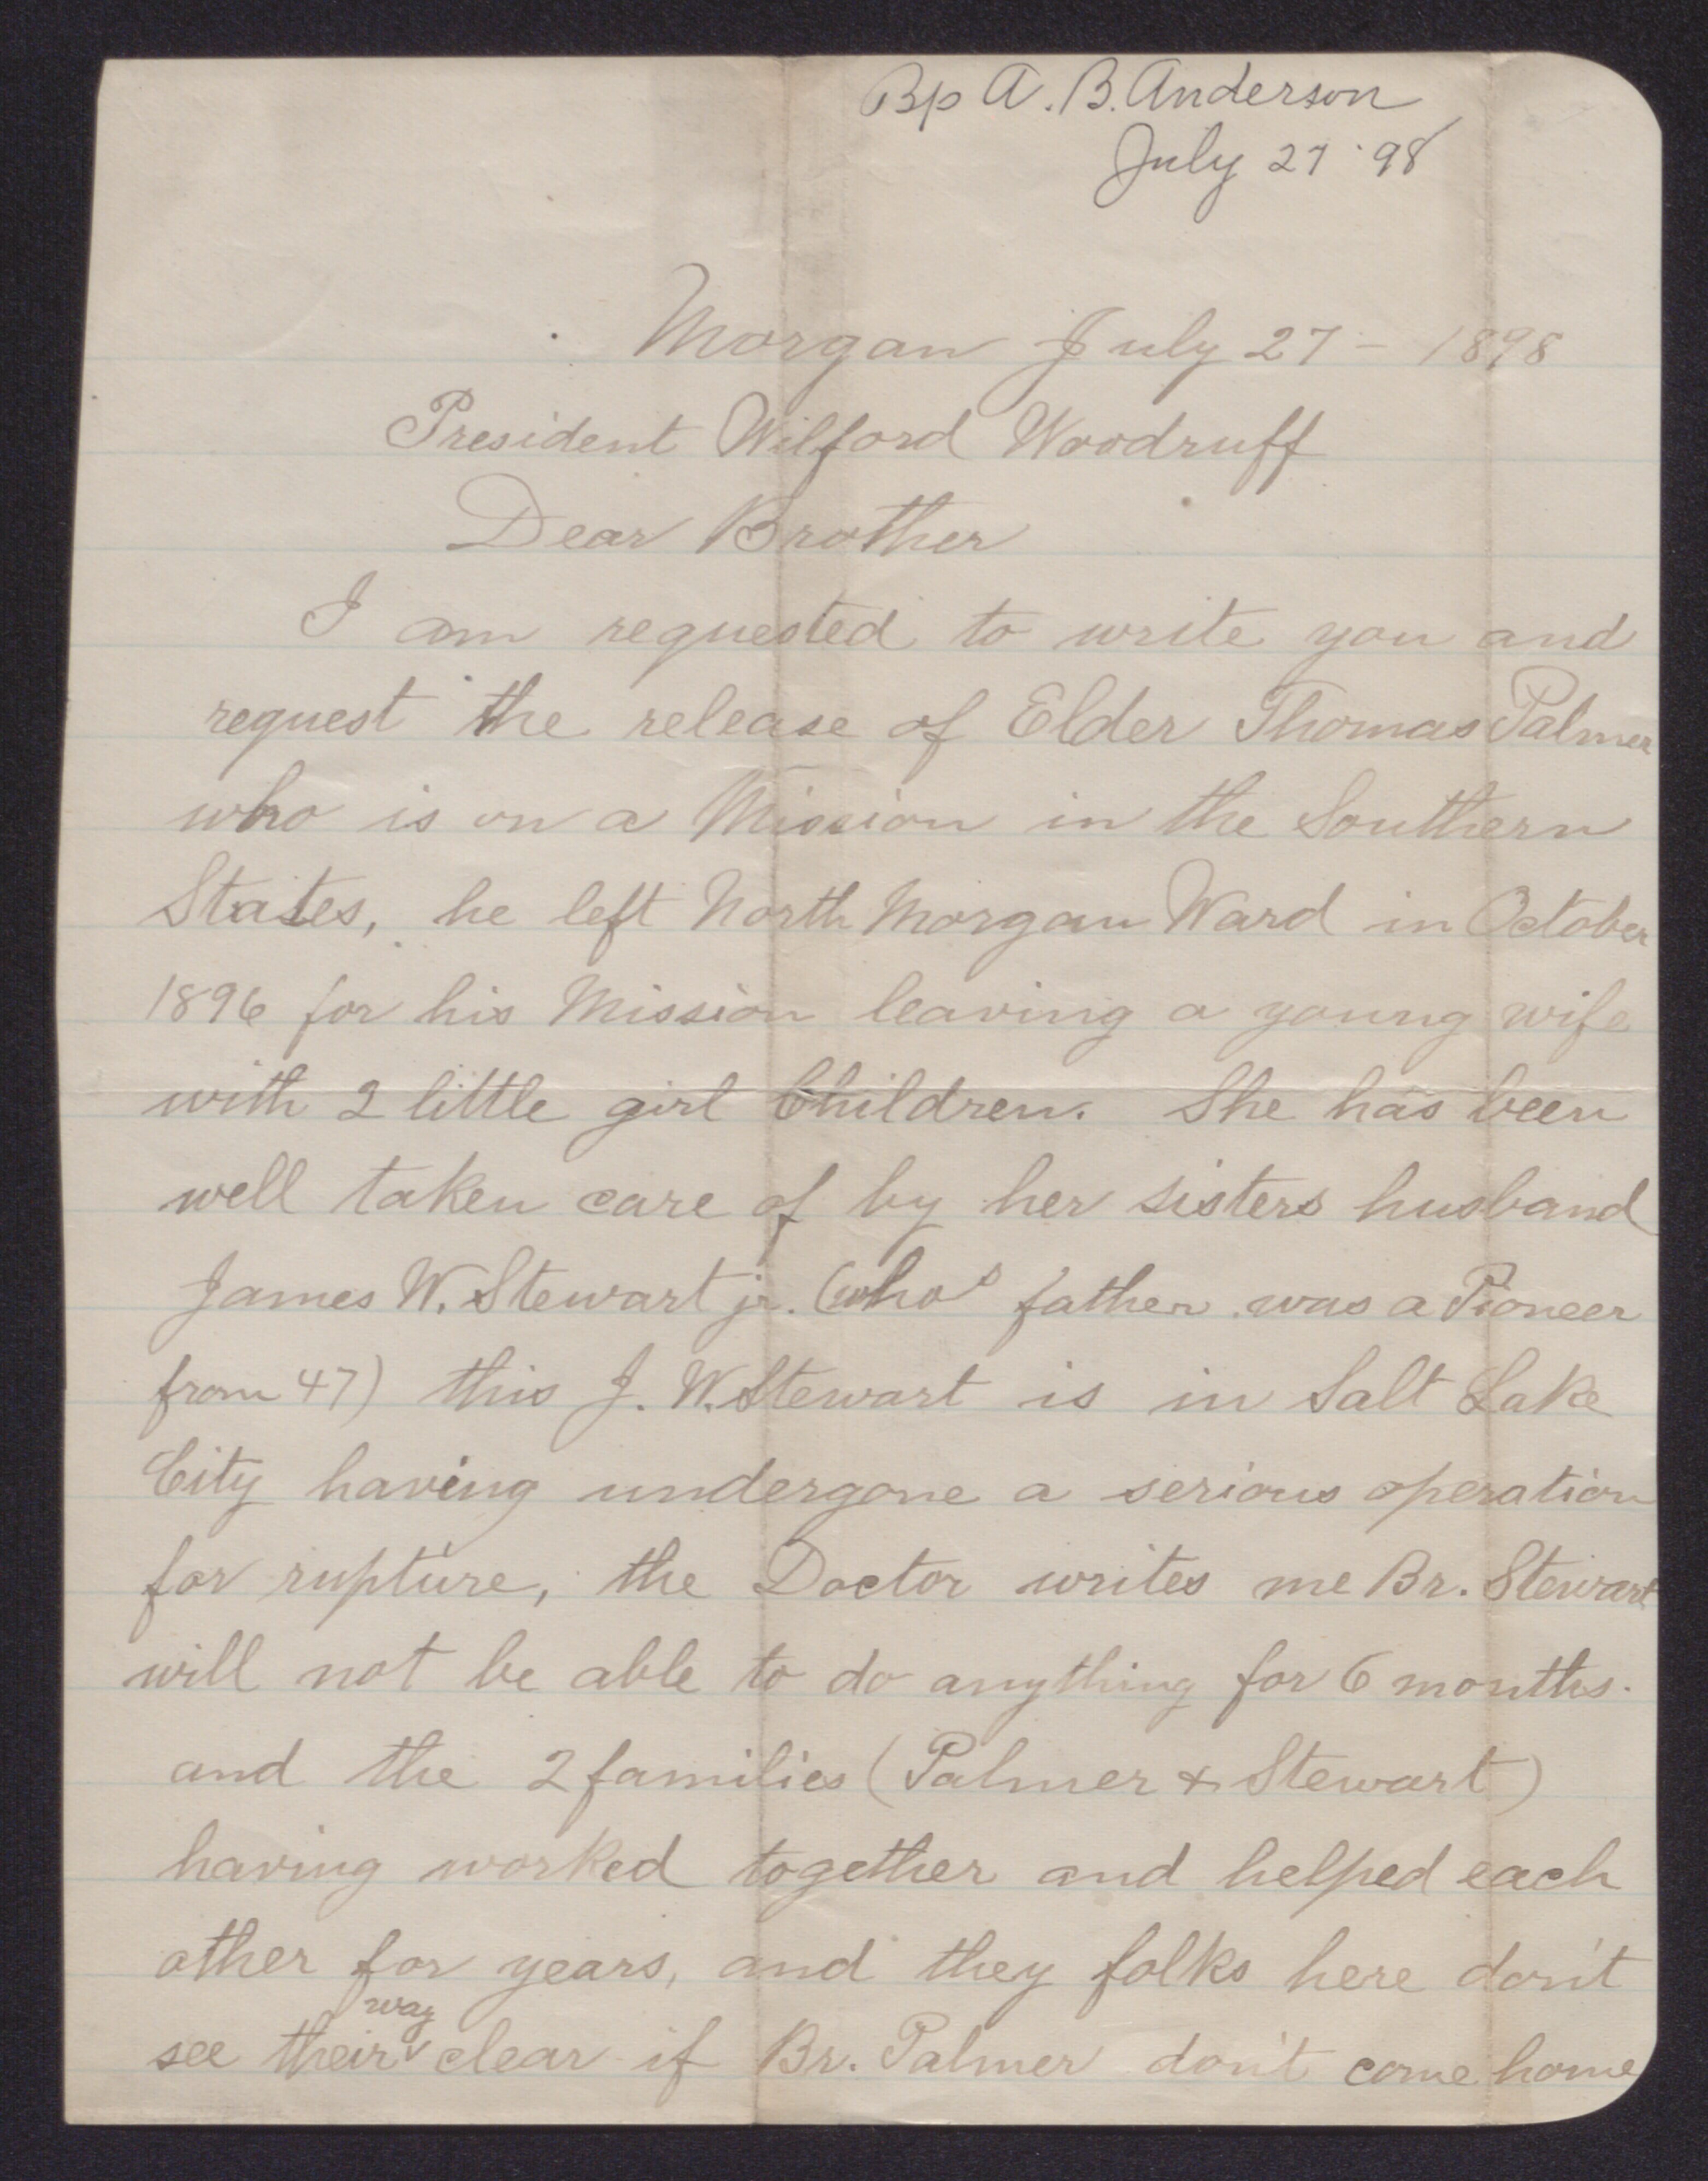 Bp A. B. Anderson
July 27 '98
Morgan July 27 - 1898
President Wilford Woodruff
Dear Brother
I am requested to write you and
request the release of Elder Thomas Palmer
who is on a Mission in the Southern
States, he left North Morgan Ward in October
1896 for his Mission leaving a young wife
with 2 little girl Children. She has been
well taken care of by her sisters husband
James W. Stewart jr. (whos father was a Pioneer
from 47) this J. W. Stewart is in Salt Lake
City having undergone a serious operation
for rupture, the Doctor writes me Br. Stewart
will not be able to do anything for 6 months.
and the 2 families (Palmer & Stewart)
having worked together and helped each
other for years, and they folks here don't
see their way clear if Br. Palmer don't come home